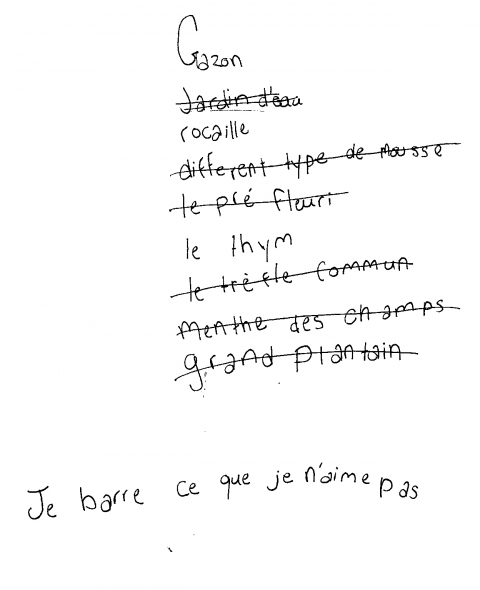 Gazon
Jardin d'eau
rocaille
different type de mousse
le pré fleuri
le thym
le trèfle commun
Menthe des champs
grand plantain
Je barre ce que je n'aime pas